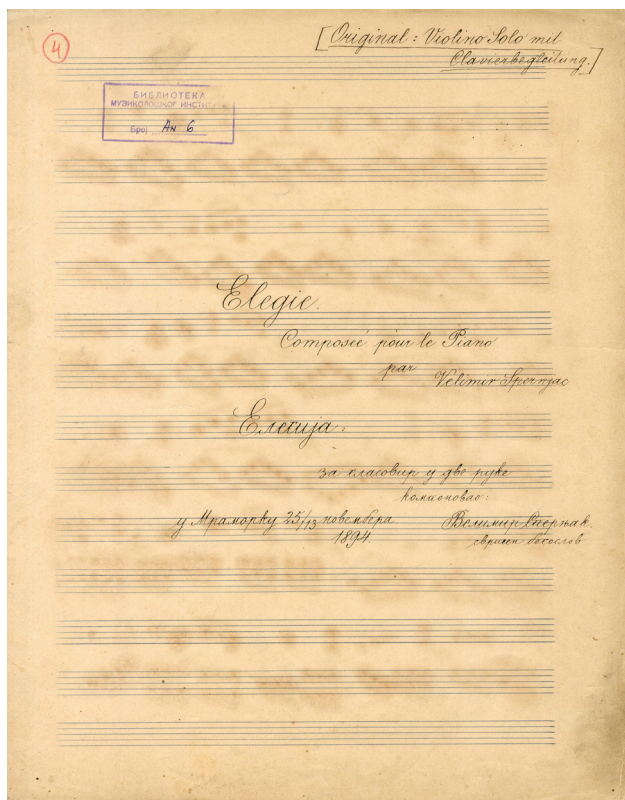 4
[Original: Violino Solo mit
Clavierbegleitung.]
БИБЛИОТЕКА
МУЗИКОЛОШКОГ ИНСТИТУТА
Број Ан 6
Elegie.
Composée pour le Piano
par
Velimir Spernjac
Елегија.
за гласовир у две руке
компоновао:
у Мраморку 25/13 новембра
1894.
Велимир Сперњак.
свршен богослов